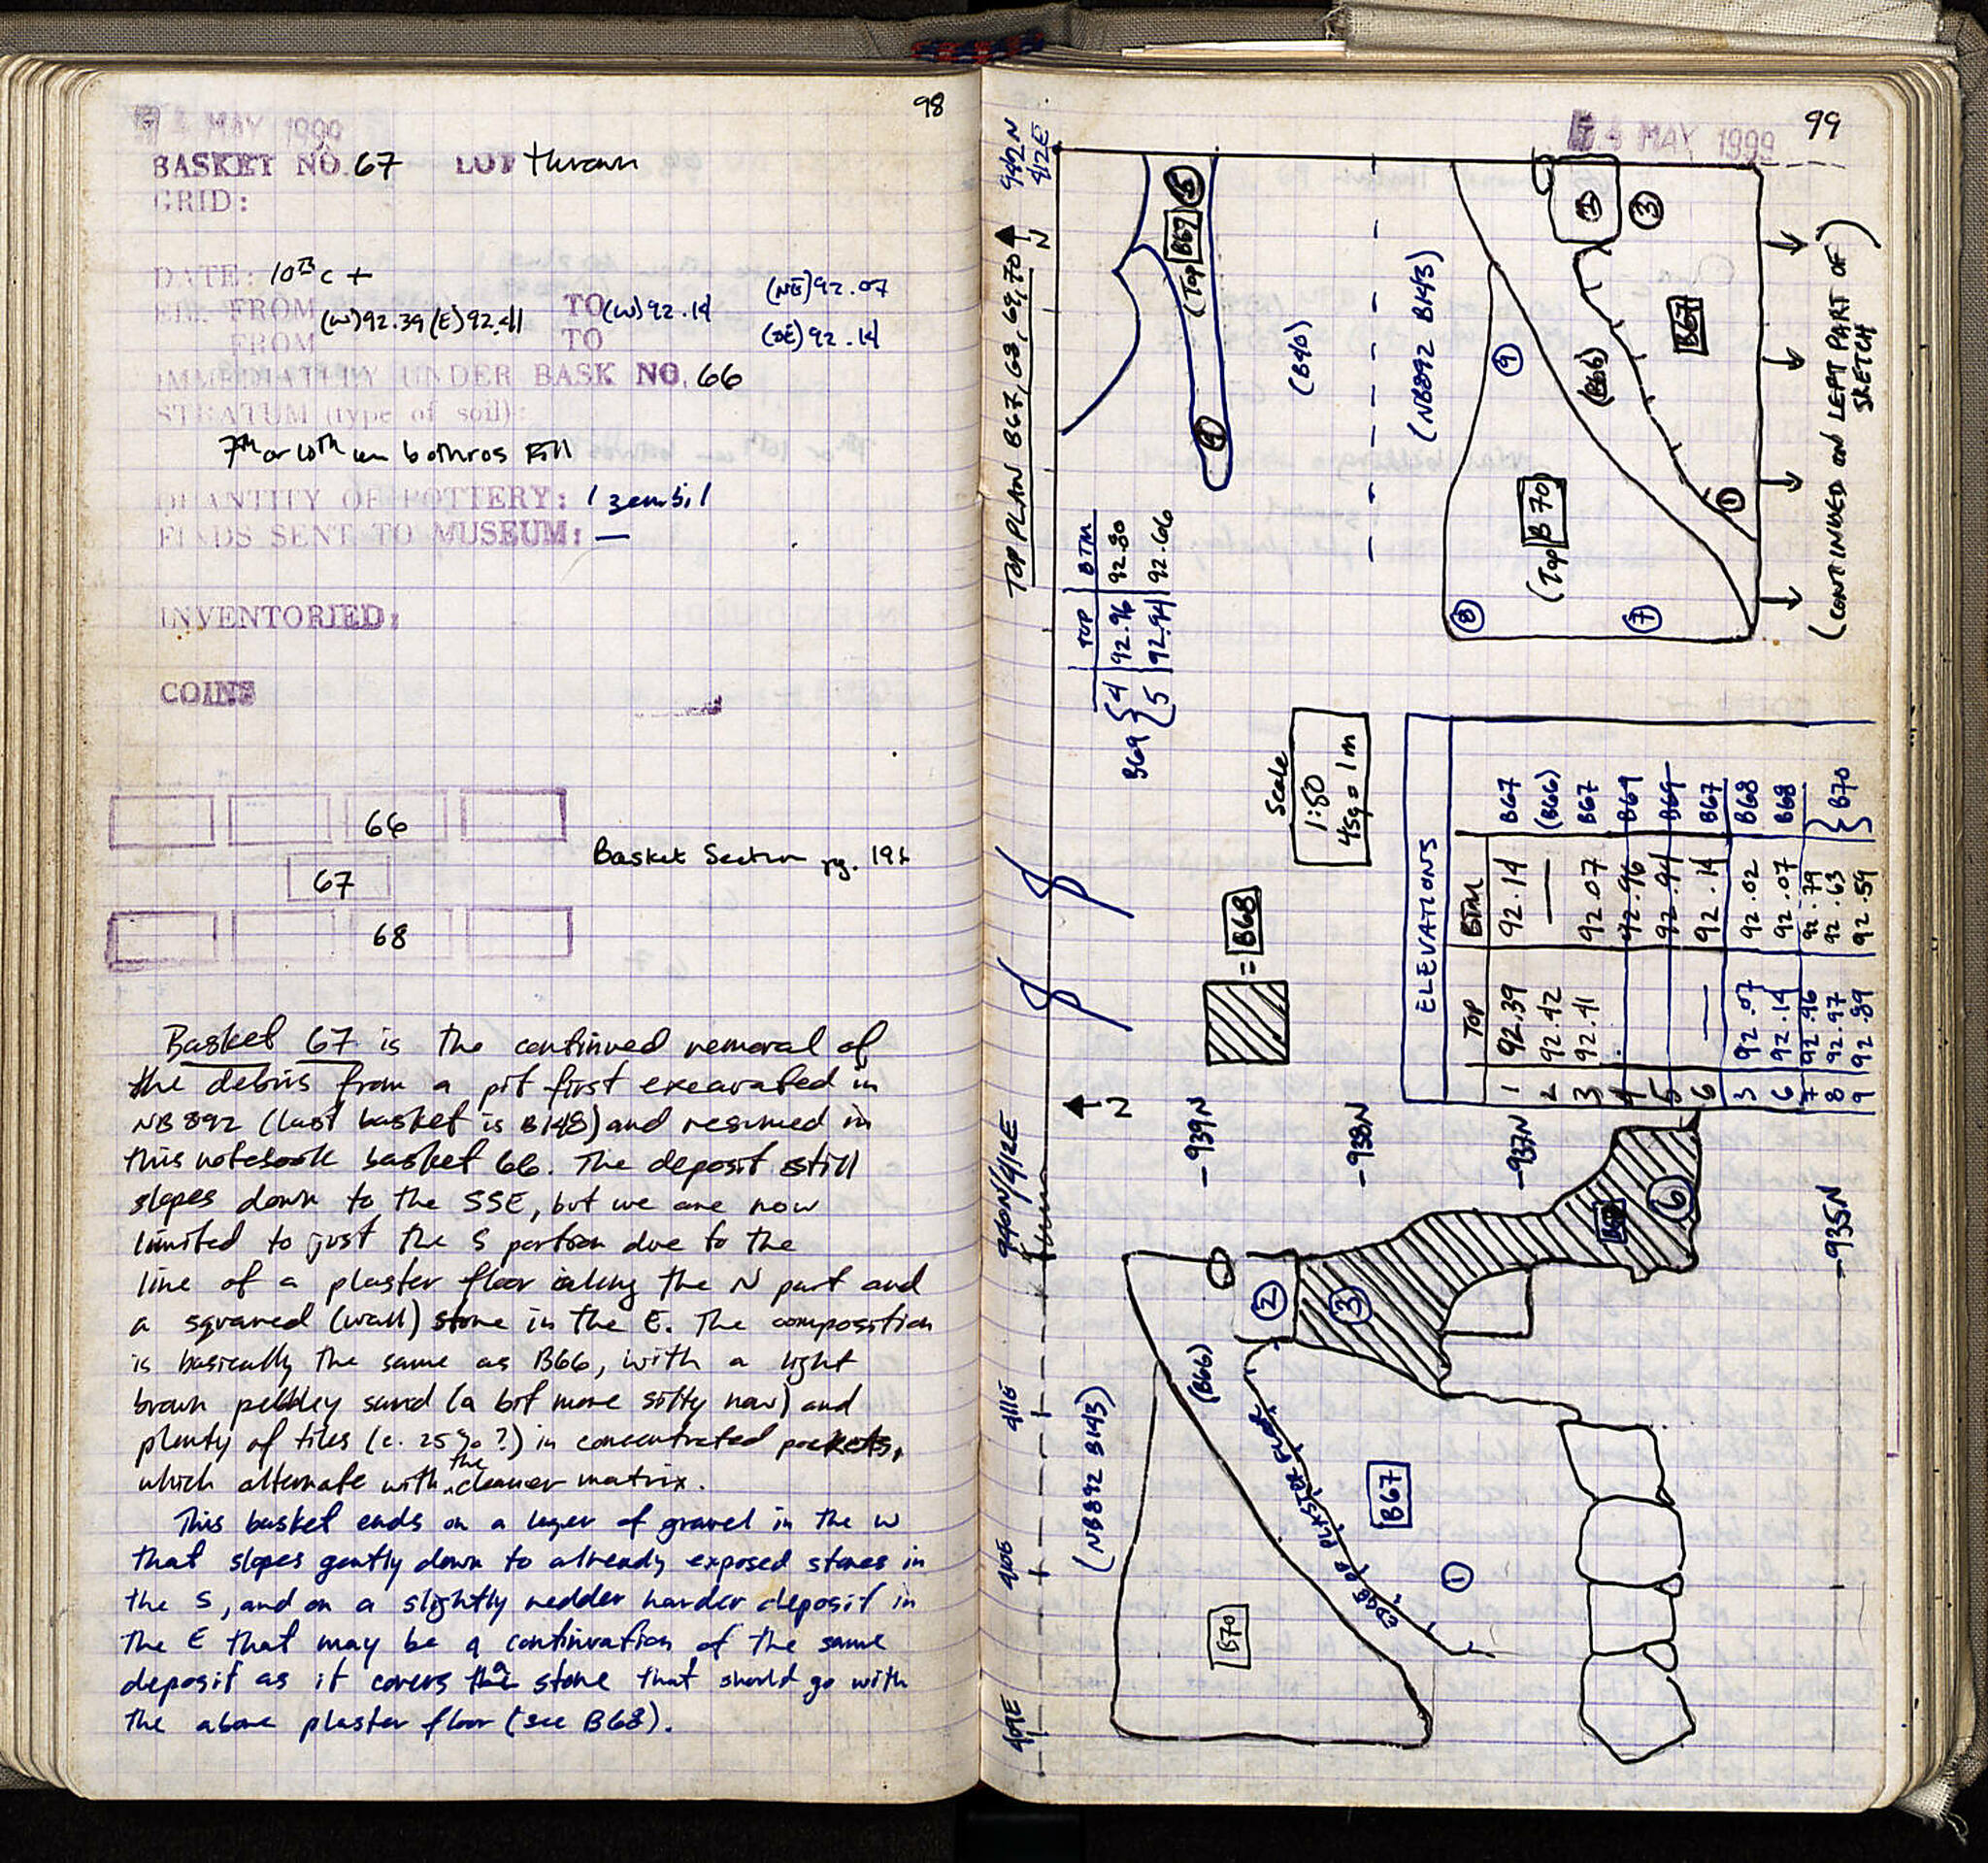 98
4 MAY 1999
BASKET NO. 67 LOT thrown
GRID:
DATE: 10th c +
FROM (W) 92.39 (E) 92.41 TO (W) 92.14 (NE) 92.07
FROM TO (SE) 92.14
IMMEDIATELY UNDER BASK NO. 66
STRATUM (type of soil):
7th or 10th cen bothros Fill
QUANTITY OF POTTERY: 1 zembil
FINDS SENT TO MUSEUM: —
INVENTORIED:
COINS
66
67
Basket Section pg.
68
Basket 67 is the continued removal of
the debris from a pit first excavated in
NB 892 (last basket is B148) and resumed in
this notebook basket 66. The deposit still
slopes down to the SSE, but we are now
limited to just the S portion due to the
line of a plaster floor along the N part and
a squared (wall) stone in the E. The composition
is basically the same as B66, with a light
brown pebbley sand (a bit more silty now) and
plenty of tiles (c. 25% ?) in concentrated pockets,
which alternate with the cleaner matrix.
This basket ends on a layer of gravel in the W
that slopes gently down to already exposed stones in
the S, and on a slightly redder harder deposit in
the E that may be a continuation of the same
deposit as it covers the a stone that should go with
the above plaster floor (see B68).
99
4 MAY 1999
TOP PLAN B67, 68, 69, 70 N
942N
412E
(Top B67)
4
(B40)
(NB892 B143)
9
(B66)
3
B67
1
(Top B70)
8
7
(CONTINUED ON LEFT PART OF
SKETCH)
TOP BTM
B69 { 4 92.96 92.80
5 92.94 92.66
Scale
1:50
4sq = 1m
= B68
ELEVATIONS
TOP BTM
1 92.39 92.14 B67
2 92.42 — (B66)
3 92.41 92.07 B67
4 92.96 B69
5 92.94 B69
6 — 92.14 B67
3 92.07 92.02 B68
6 92.14 92.07 B68
7 92.96 92.79
8 92.97 92.63 } B70
9 92.89 92.59
N
940N/412E
411E
410E
409E
-939N
-938N
-937N
-935N
(NB892 B143)
(B66)
2
3
6
B68
EDGE OF PLASTER FLOOR
B67
1
B70